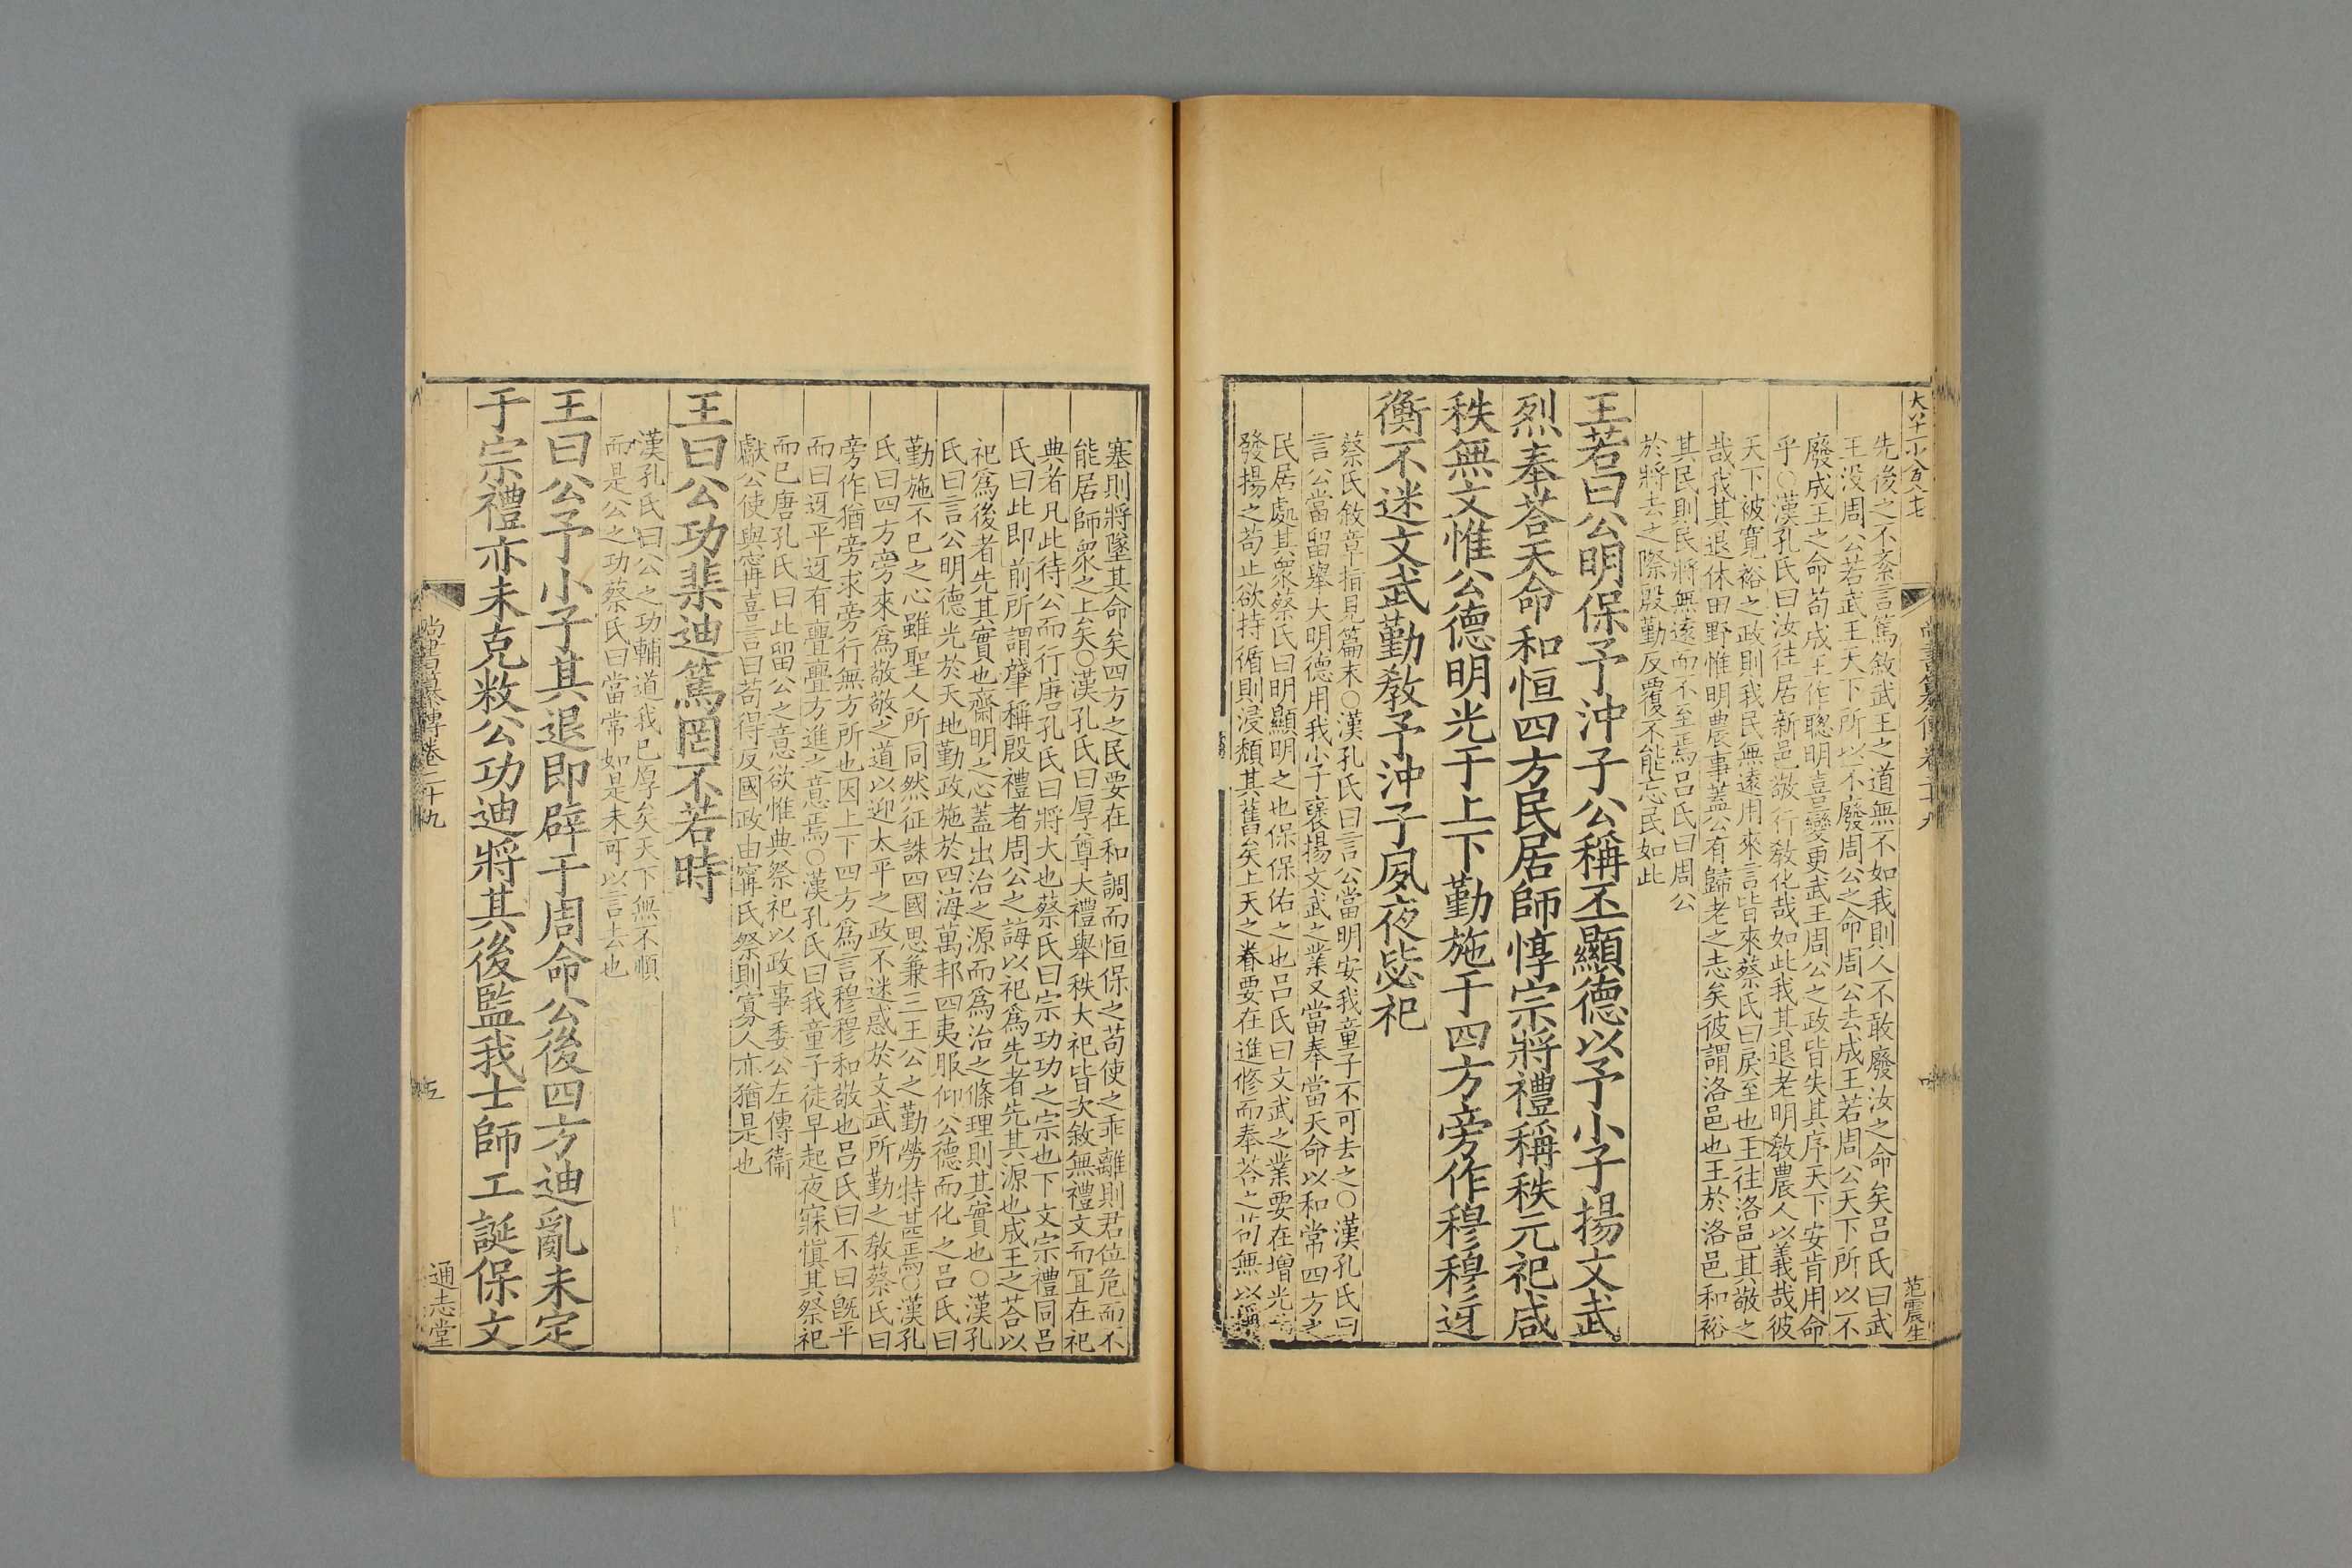 先後之不紊言篤敘武王之道無不如我則人不敢廢汝之命矣呂氏曰武
王没周公若武王天下所以不廢周公之命周公去成王若周公天下所以不
廢成王之命苟成王作聰明喜變更武王周公之政皆失其序天下安肯用命
乎○漢孔氏曰汝往居新邑敬行敎化哉如此我其退老明敎農人以義哉彼
天下被寬裕之政則我民無遠用來言皆來蔡氏曰戾至也王往洛邑其敬之
哉我其退休田野惟明農事蓋公有歸老之志矣彼謂洛邑也王於洛邑和裕
其民則民將無遠而不至焉呂氏曰周公
於將去之際殷勤反覆不能忘民如此
王若曰公明保予沖子公稱丕顯德以予小子揚文武
烈奉荅天命和恒四方民居師惇宗將禮稱秩元祀咸
秩無文惟公德明光于上下勤施于四方旁作穆穆迓
衡不迷文武勤敎予沖子夙夜毖祀
蔡氏敘章指見篇末○漢孔氏曰言公當明安我童子不可去之○漢孔氏曰
言公當留舉大明德用我小子襃揚文武之業又當奉當天命以和常四方之
民居處其衆蔡氏曰明顯明之也保保佑之也呂氏曰文武之業要在增光
發揚之苟止欲持循則浸頹其舊矣上天之眷要在進修而奉荅之苟無以
范震生
塞則將墜其命矣四方之民要在和調而恒保之苟使之乖離則君位危而不
能居師衆之上矣○漢孔氏曰厚尊大禮舉秩大祀皆次敘無禮文而宜在祀
典者凡此待公而行唐孔氏曰將大也蔡氏曰宗功功之宗也下文宗禮同呂
氏曰此即前所謂肇稱殷禮者周公之誨以祀爲先者先其源也成王之荅以
祀爲後者先其實也齋明之心蓋出治之源而爲治之條理則其實也○漢孔
氏曰言公明德光於天地勤政施於四海萬邦四夷服仰公德而化之呂氏曰
勤施不已之心雖聖人所同然征誅四國思兼三王公之勤勞特甚焉○漢孔
氏曰四方旁來爲敬敬之道以迎太平之政不迷惑於文武所勤之敎蔡氏曰
旁作猶旁求旁行無方所也因上下四方爲言穆穆和敬也呂氏曰不曰旣平
而曰迓平迓有亹亹方進之意焉○漢孔氏曰我童子徒早起夜寐愼其祭祀
而已唐孔氏曰此留公之意欲惟典祭祀以政事委公左傳衞
獻公使與甯喜言曰苟得反國政由甯氏祭則寡人亦猶是也
王曰公功棐迪篤罔不若時
漢孔氏曰公之功輔道我已厚矣天下無不順
而是公之功蔡氏曰當常如是未可以言去也
王曰公予小子其退即辟于周命公後四方迪亂未定
于宗禮亦未克敉公功迪將其後監我士師工誕保文
尚書纂傳卷二十九
五
通志堂